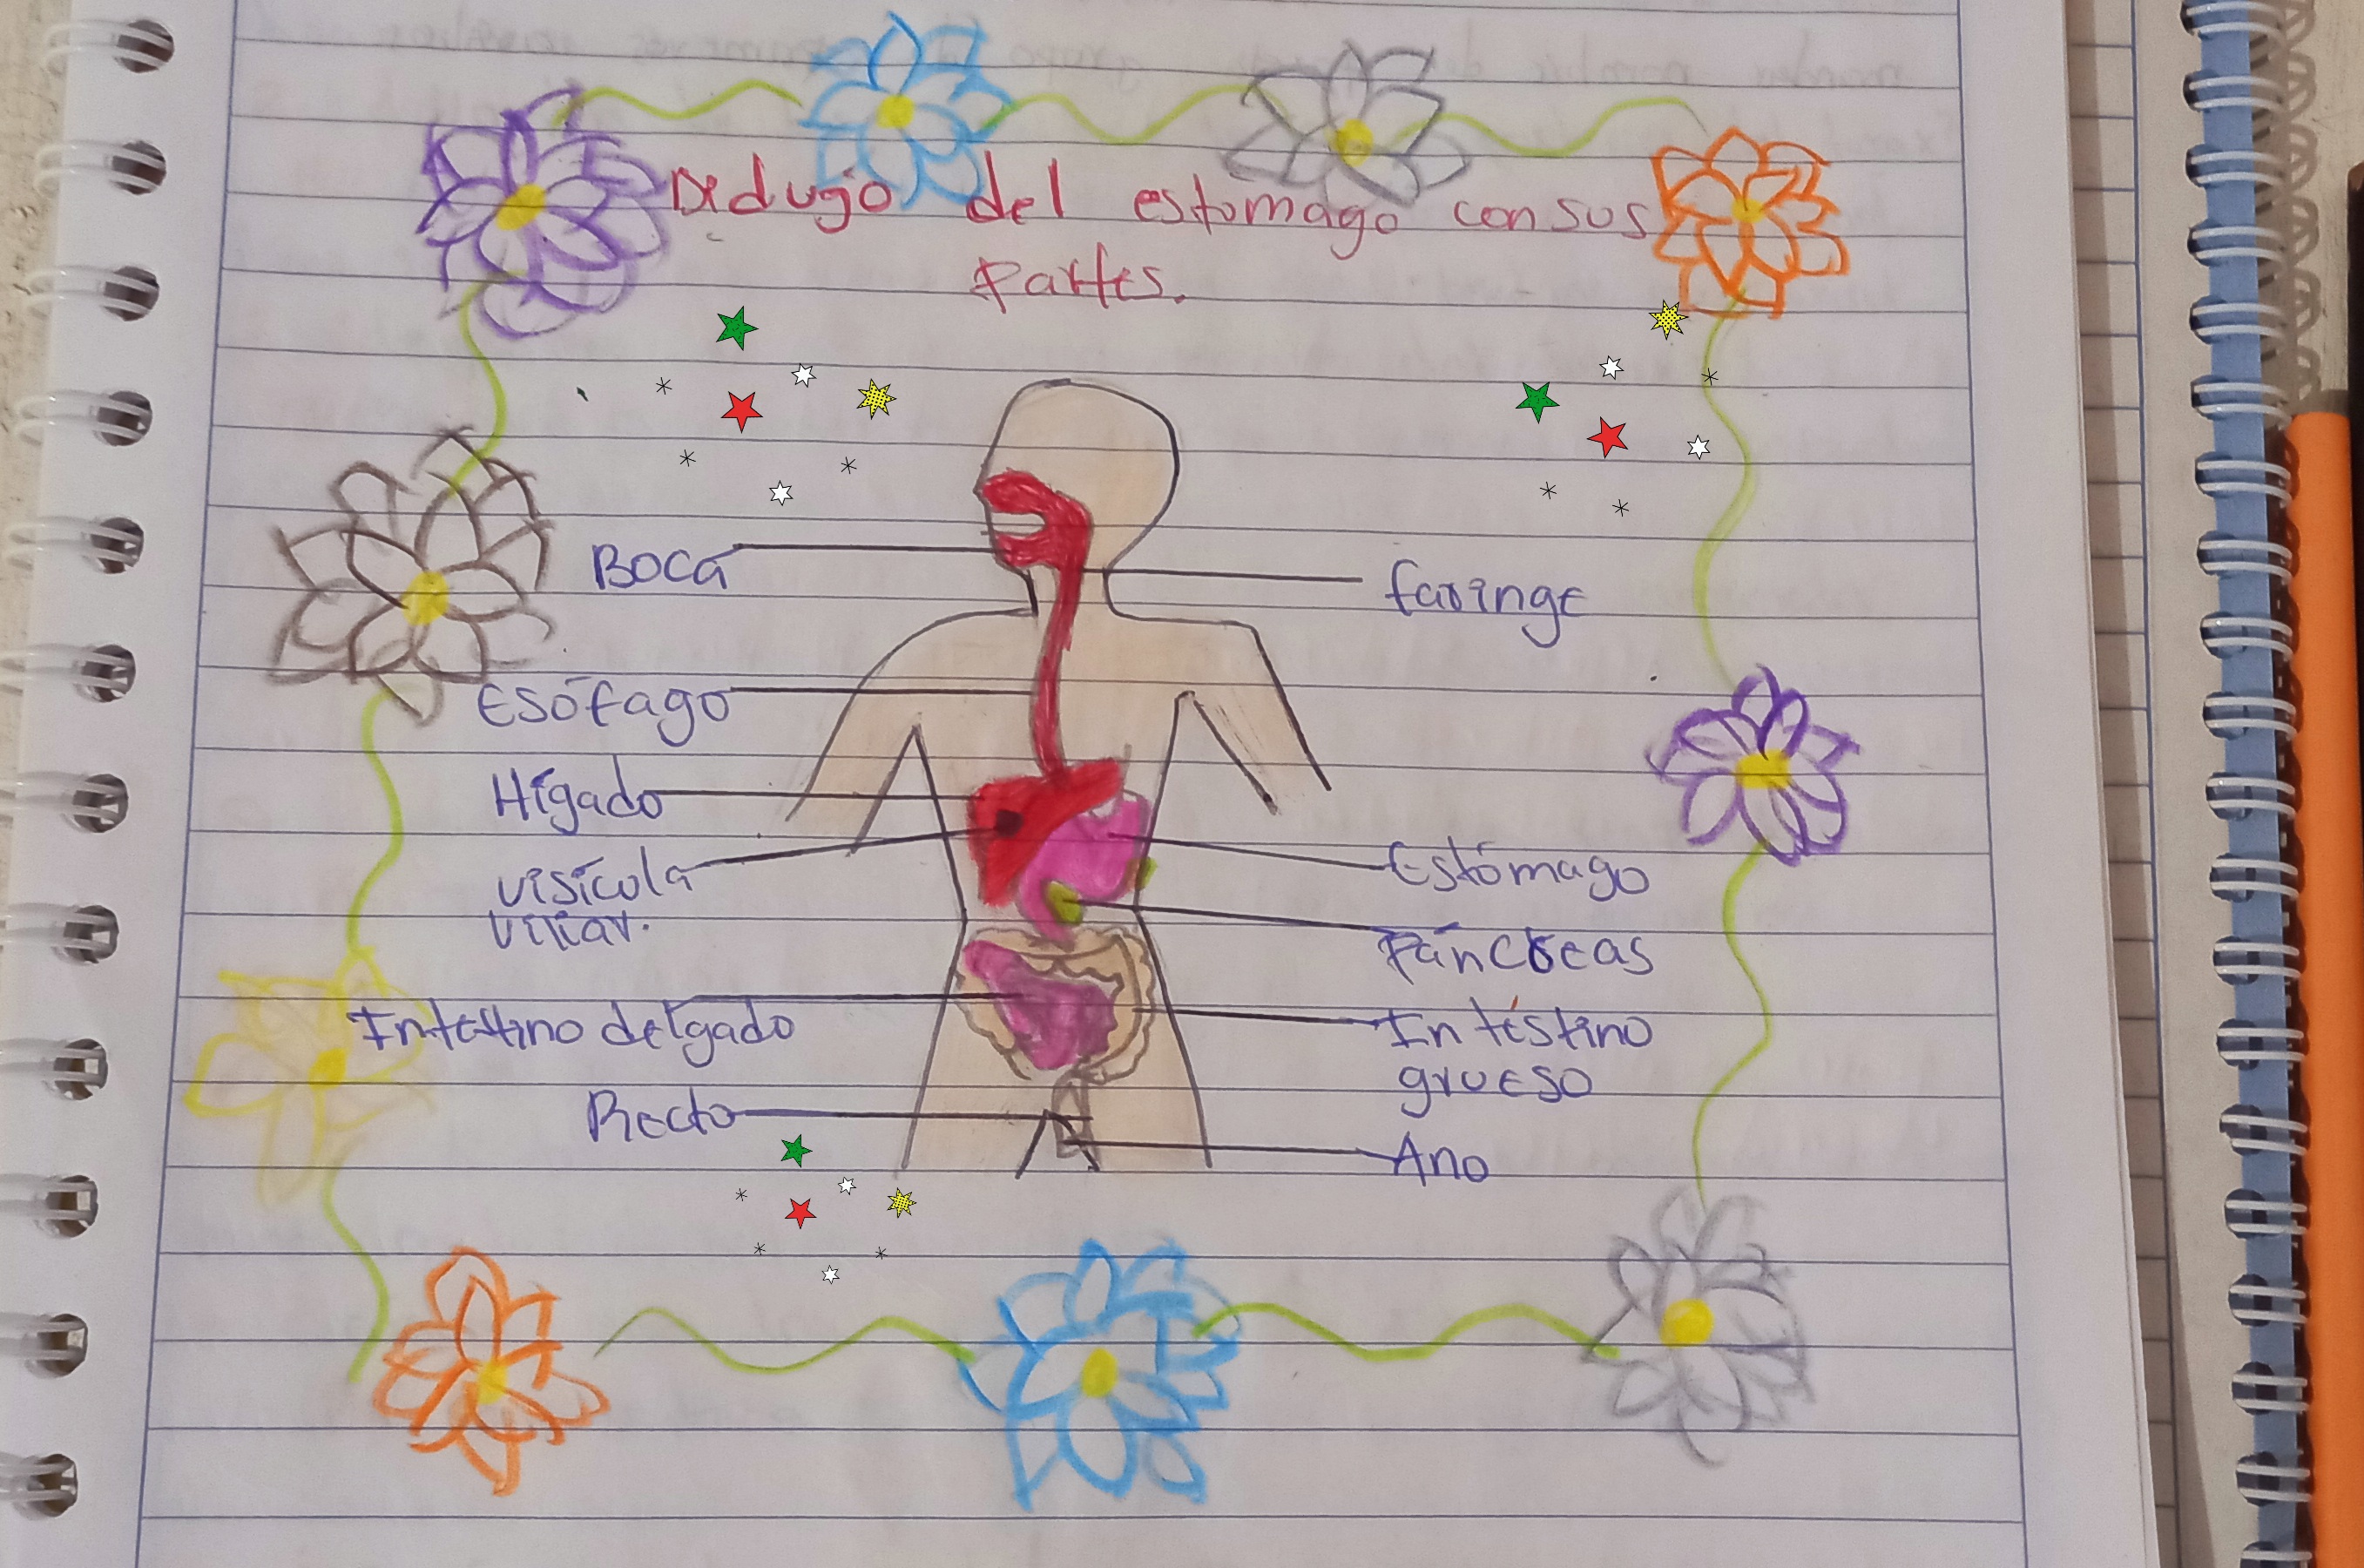 Didujo del estomago con sus
Partes.
Boca
faringe
Esófago
Hígado
visícula
viliar.
Estómago
Páncreas
Intestino delgado
Intéstino
grueso
Recto
Ano